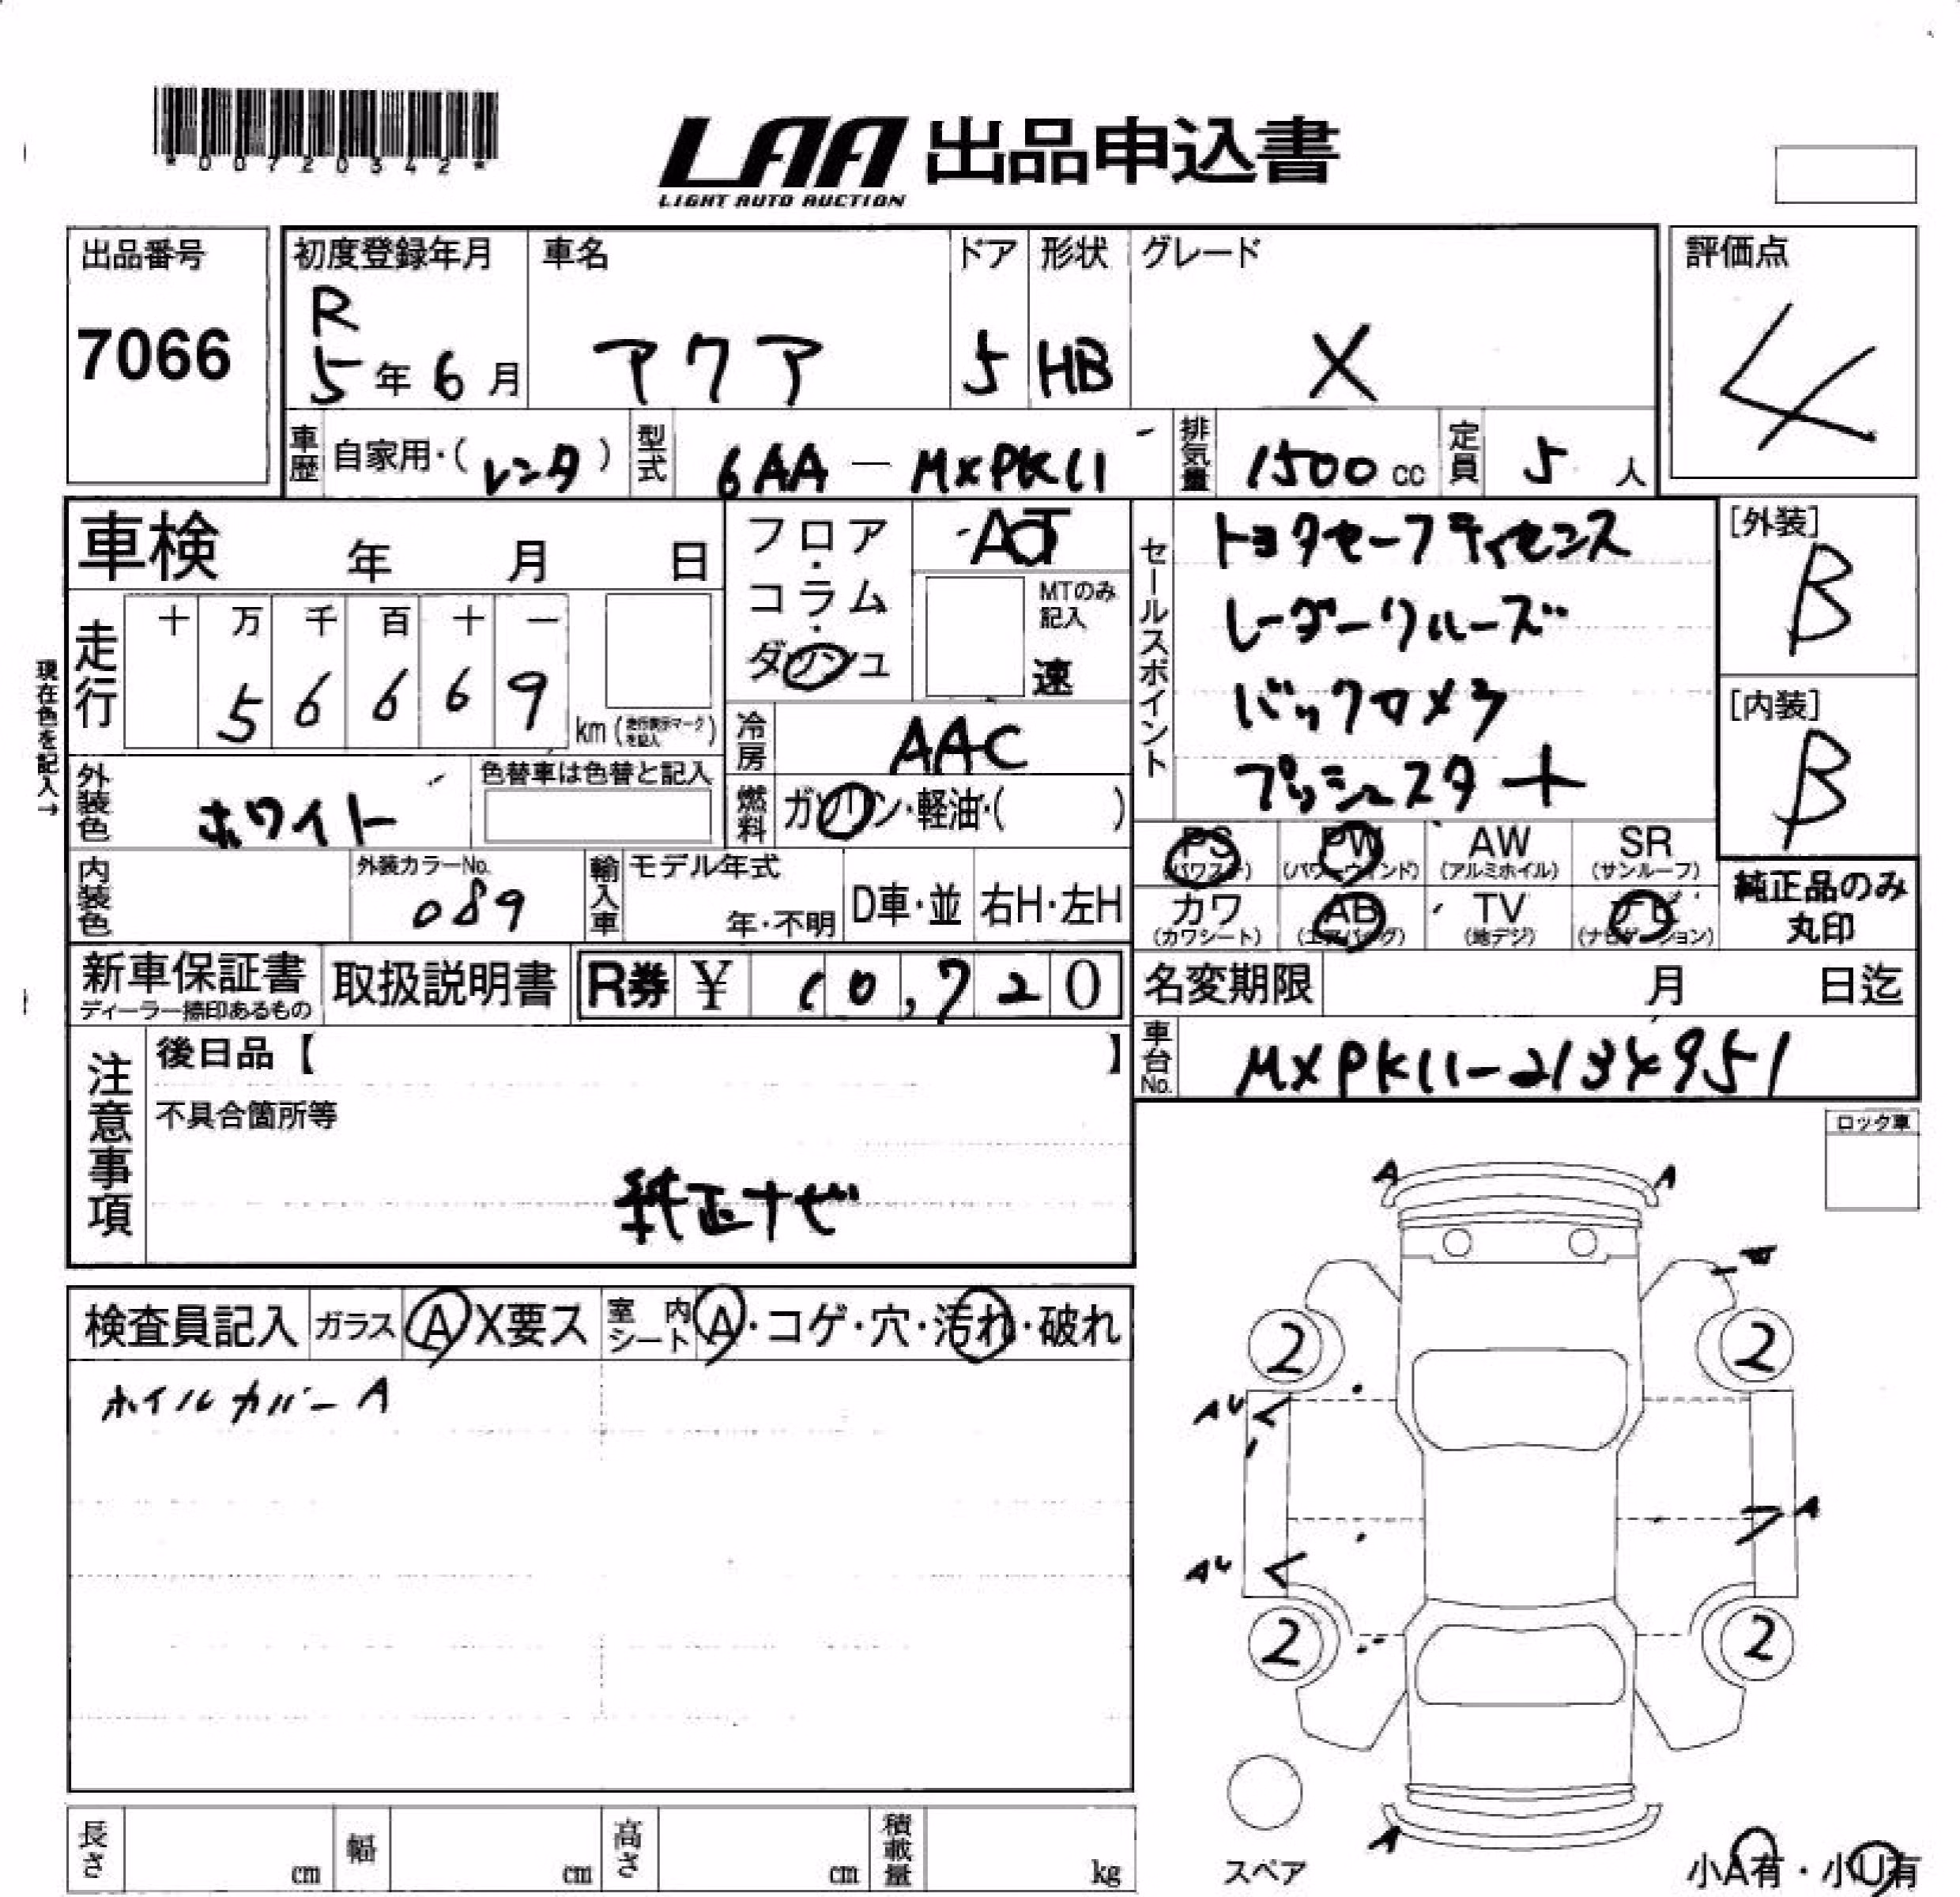 *00720342*
LAA 出品申込書
LIGHT AUTO AUCTION
出品番号
7066
初度登録年月
R
5年6月
車名
アクア
ドア
5
形状
HB
グレード
X
評価点
4
車歴 自家用・(レンタ)
型式 6AA-MXPK11
排気量 1500cc
定員 5人
車検 年 月 日
フロア・コラム・ダッシュ
AT
MTのみ記入
速
セールスポイント
トヨタセーフティセンス
レーダークルーズ
バックカメラ
プッシュスタート
[外装]
B
[内装]
B
現在色を記入→
走行
十 万 千 百 十 一
5 6 6 6 9
km(走行表示マークを記入)
冷房 AAC
外装色 ホワイト
色替車は色替と記入
燃料 ガソリン・軽油・( )
PS (パワステ)
PW (パワーウィンド)
AW (アルミホイル)
SR (サンルーフ)
内装色
外装カラーNo.
089
輸入車
モデル年式
年・不明
D車・並
右H・左H
カワ (カワシート)
AB (エアバッグ)
TV (地デジ)
ナビ (ナビゲーション)
純正品のみ
丸印
新車保証書
ディーラー捺印あるもの
取扱説明書
R券 ¥ 10,720
名変期限 月 日迄
車台No. MXPK11-2134951
注意事項
後日品【 】
不具合箇所等
純正ナビ
ロック車
検査員記入
ガラス A X要ス
室内シート A・コゲ・穴・汚れ・破れ
ホイルカバーA
A A
2 2
AU
A
AU
2 2
A
スペア
小A有・小U有
長さ cm
幅 cm
高さ cm
積載量 kg